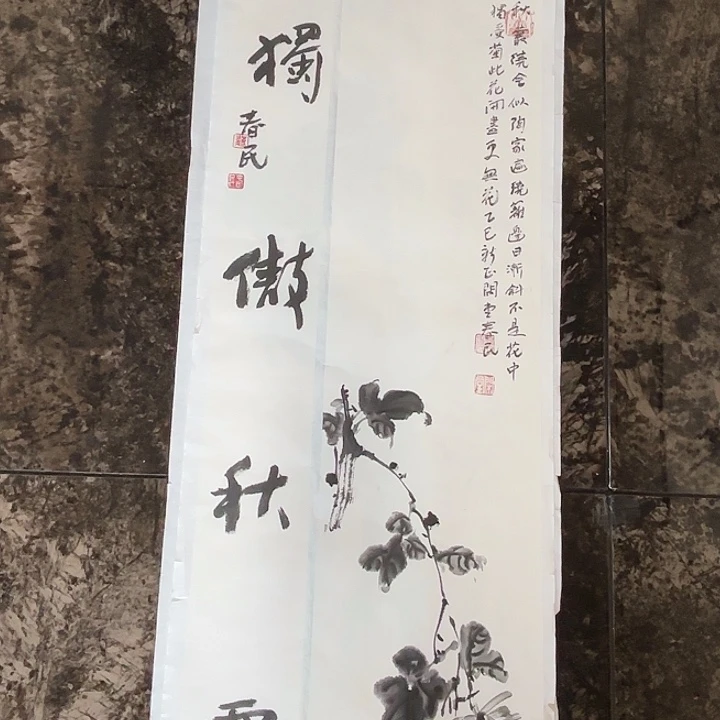 秋叢繞舍似陶家遍繞籬邊日漸斜不是花中
偏愛菊此花開盡更無花乙巳新正春民
獨傲秋
春民